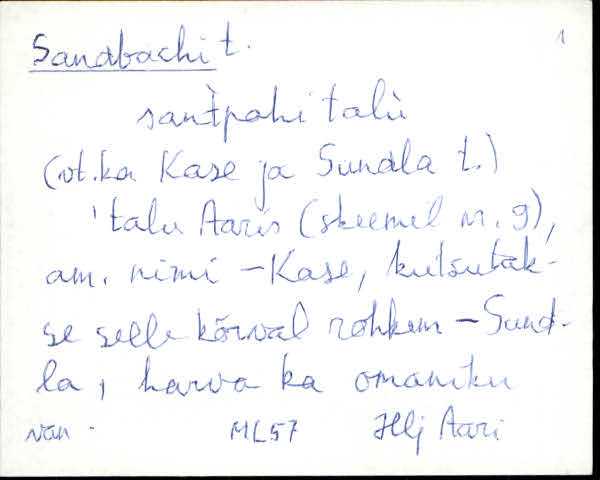 Sandbachi t.
1
santpahi talù
(vt. ka Kase ja Sundla t.)
'talu Aaris (skeemil nr. 9),
am. nimi – Kase, kutsutak-
se selle kõrval rohkem – Sund-
la, harva ka omaniku
vän. ML57 Hlj Aari